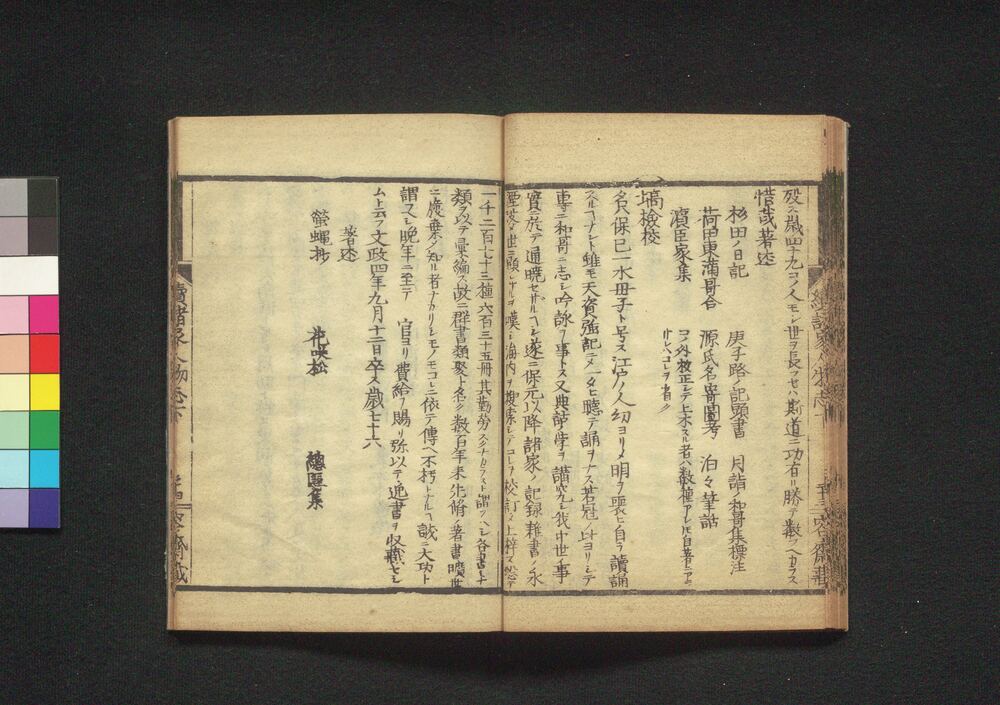 歿ス歳四十九コノ人モシ世ヲ長フセハ斯道ニ功有リ勝テ数フヘカラス
惜哉著述
杉田ノ日記　庚子路ノ記頭書　月詣ノ和哥集標注
荷田東満哥合　源氏名寄圖考　泊々筆話
濱臣家集　コノ外校正シテ上木スル者ハ数種アレ𪜈自著ニアラ
サレハコレヲ省ク
塙檢校
名ハ保巳一水母子ト号ス江戸ノ人幼ヨリメ明ヲ喪ヒ自ラ讀誦
スルナシト雖モ天資強記ニメ一タヒ聴テ誦ヲナス若冠ノ時ヨリシテ
専ニ和哥ニ志シ吟詠ヲ事トス又典詁ノ学ヲ講究シ我中世ノ事
實ニ於テ通暁セザルナシ遂ニ保元以降諸家ノ記録雜書ノ永
湮没シ世ニ顕レザルヲ嘆シ海内ヲ捜索シテコレヲ校訂メ上梓ス惣テ
一千二百七十三種六百三十五冊其勤労スクナカラスト謂ツヘシ各書ニ
類ヲ以テ彙編ス故ニ群書類聚ト名ク数百年来先脩ノ著書曠世
ニ廢棄シ知ル者ナカリシモノモコレニ依テ傳ヘ不朽トナル誠ニ大功ト
謂フヘシ晩年ニ至テ　官ヨリ費給ヲ賜リ弥以テ逸書ヲ収蔵セシ
ムト云フ文政四年九月十二日卒ス歳七十六
著述
螢蠅抄　花咲松　總匯集
續諸家人物志下